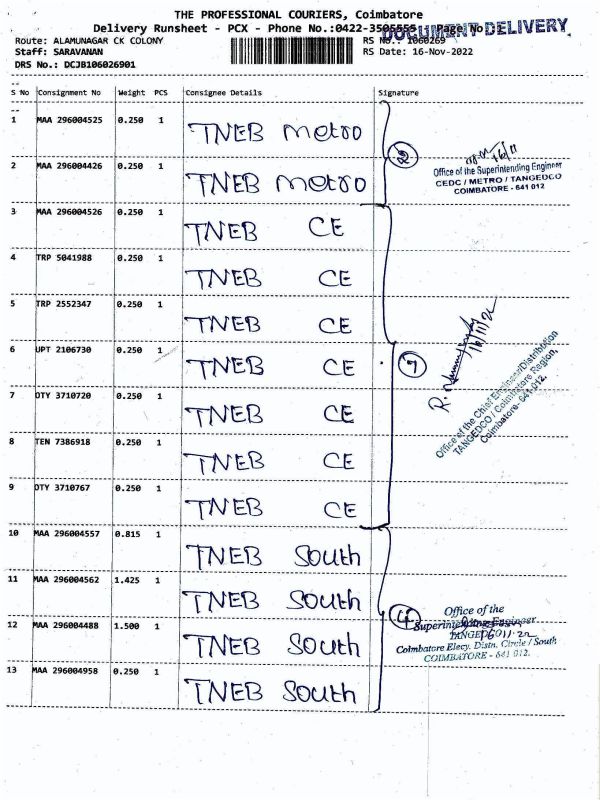 THE PROFESSIONAL COURIERS, Coimbatore
Delivery Runsheet - PCX - Phone No.:0422-3505555 Page No
DOCUMENT DELIVERY.
Route: ALAMUNAGAR CK COLONY
RS No.: 1060269
Staff: SARAVANAN
RS Date: 16-Nov-2022
DRS No.: DCJB106026901
S No Consignment No Weight PCS Consignee Details Signature
1 MAA 296004525 0.250 1 TNEB metro
2 MAA 296004426 0.250 1 TNEB metro
2
16/11
Office of the Superintending Engineer
CEDC / METRO / TANGEDCO
COIMBATORE - 641 012
3 MAA 296004526 0.250 1 TNEB CE
4 TRP 5041988 0.250 1 TNEB CE
5 TRP 2552347 0.250 1 TNEB CE
6 UPT 2106730 0.250 1 TNEB CE
7 OTY 3710720 0.250 1 TNEB CE
8 TEN 7386918 0.250 1 TNEB CE
9 OTY 3710767 0.250 1 TNEB CE
7
16/11/22
Office of the Chief Engineer/Distribution
TANGEDCO / Coimbatore Region,
Coimbatore- 641 012.
10 MAA 296004557 0.815 1 TNEB South
11 MAA 296004562 1.425 1 TNEB South
12 MAA 296004488 1.500 1 TNEB South
13 MAA 296004958 0.250 1 TNEB South
4
Office of the
Superintending Engineer
TANGEDCO
16.11.22
Coimbatore Elecy. Distn. Circle / South
COIMBATORE - 641 012.